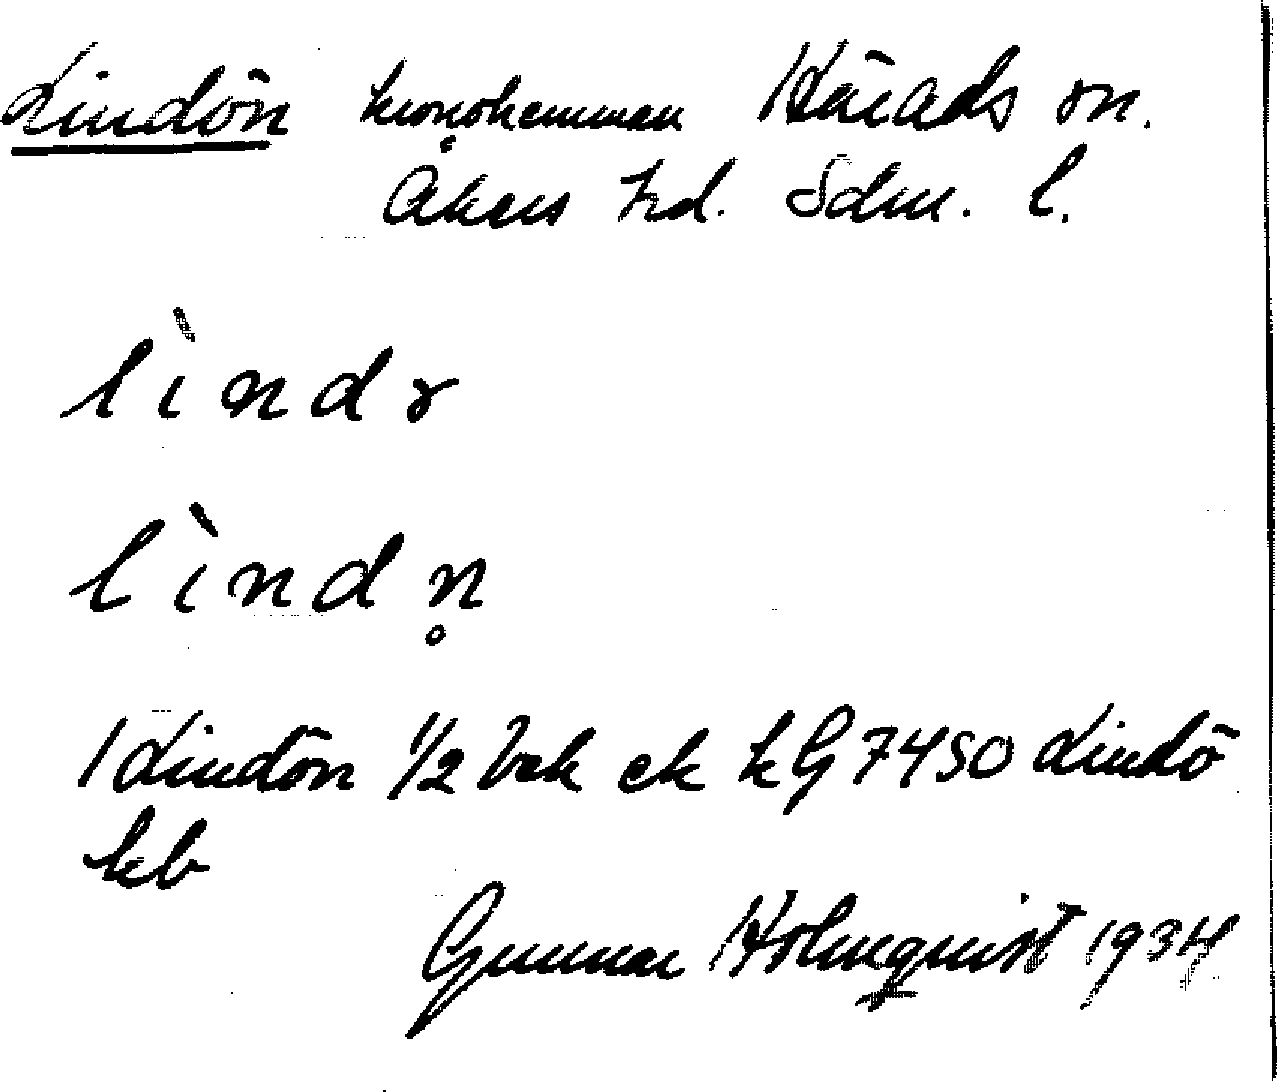 Lindön kronohemman Härads sn.
Åkers hd. Sdm. l.
lìndɤ
lìndn̥
1 Lindön 1/2 ek k G7450 Lindö
kb
Gunnar Holmquist 1934